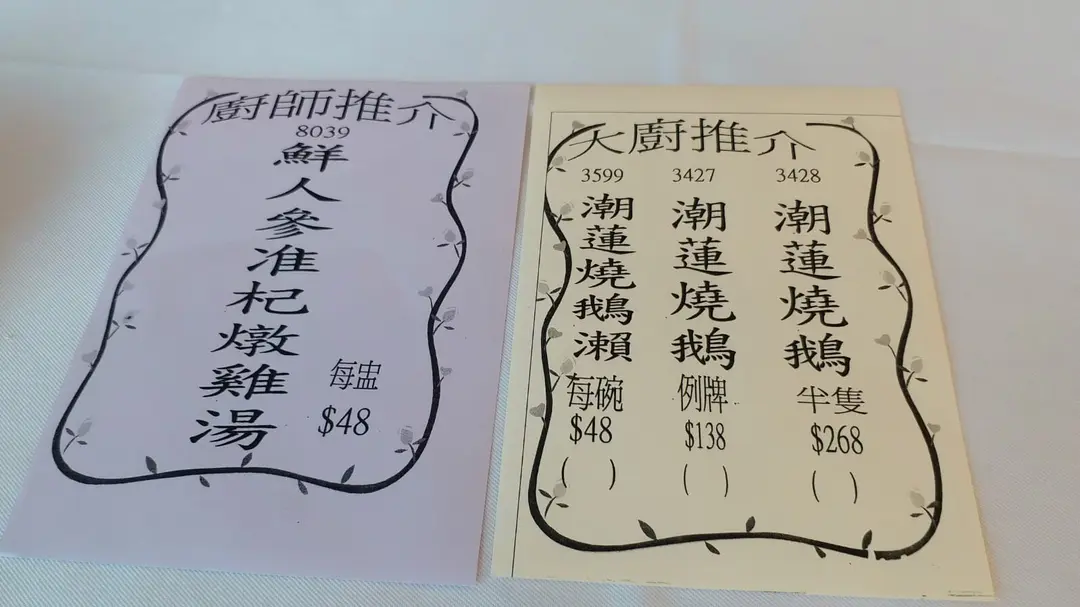 廚師推介
8039
鮮人參淮杞燉雞湯
每盅
$48
大廚推介
3599
潮蓮燒鵝瀨
每碗
$48
( )
3427
潮蓮燒鵝
例牌
$138
( )
3428
潮蓮燒鵝
半隻
$268
( )